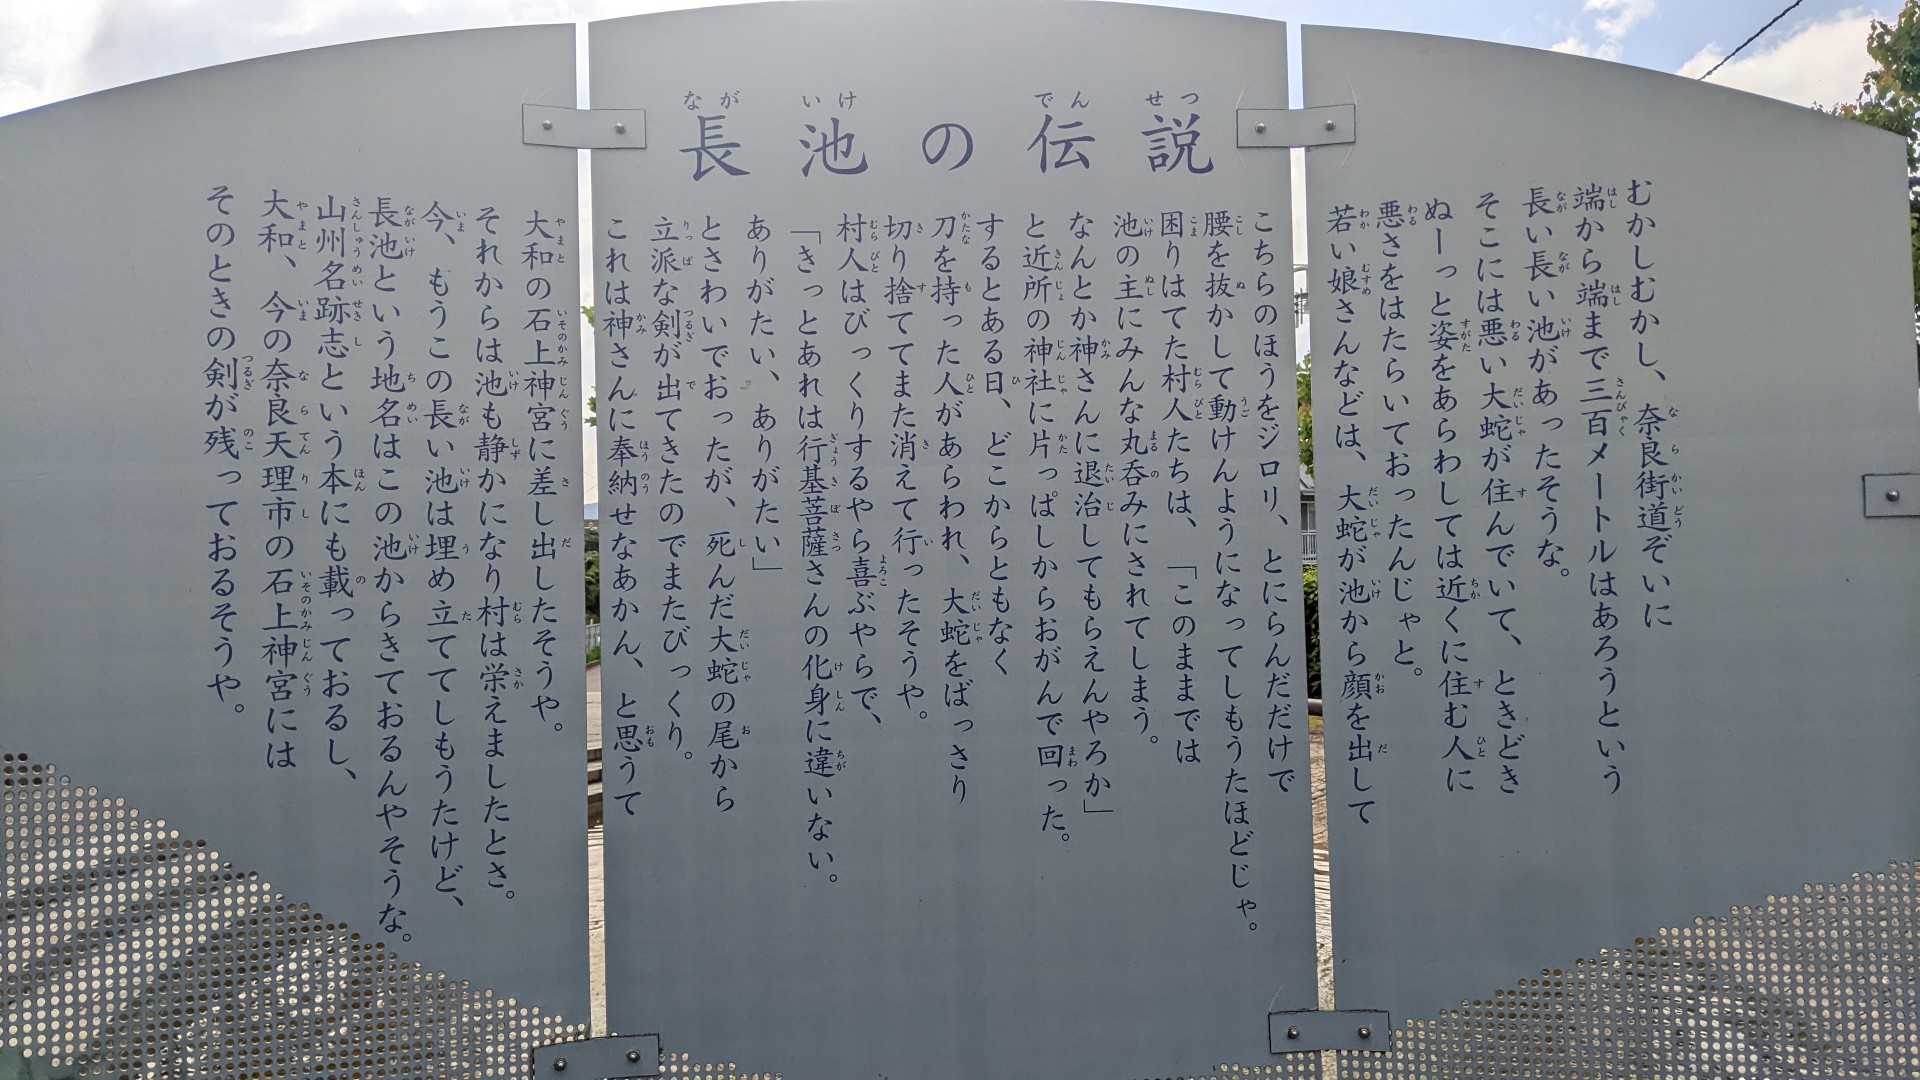 長池の伝説
むかしむかし、奈良街道ぞいに
端から端まで三百メートルはあろうという
長い長い池があったそうな。
そこには悪い大蛇が住んでいて、ときどき
ぬーっと姿をあらわしては近くに住む人に
悪さをはたらいておったんじゃと。
若い娘さんなどは、大蛇が池から顔を出して
こちらのほうをジロリ、とにらんだだけで
腰を抜かして動けんようになってしもうたほどじゃ。
困りはてた村人たちは、「このままでは
池の主にみんな丸呑みにされてしまう。
なんとか神さんに退治してもらえんやろか」
と近所の神社に片っぱしからおがんで回った。
するとある日、どこからともなく
刀を持った人があらわれ、大蛇をばっさり
切り捨ててまた消えて行ったそうや。
村人はびっくりするやら喜ぶやらで、
「きっとあれは行基菩薩さんの化身に違いない。
ありがたい、ありがたい」
とさわいでおったが、死んだ大蛇の尾から
立派な剣が出てきたのでまたびっくり。
これは神さんに奉納せなあかん、と思うて
大和の石上神宮に差し出したそうや。
それからは池も静かになり村は栄えましたとさ。
今、もうこの長い池は埋め立ててしもうたけど、
長池という地名はこの池からきておるんやそうな。
山州名跡志という本にも載っておるし、
大和、今の奈良天理市の石上神宮には
そのときの剣が残っておるそうや。